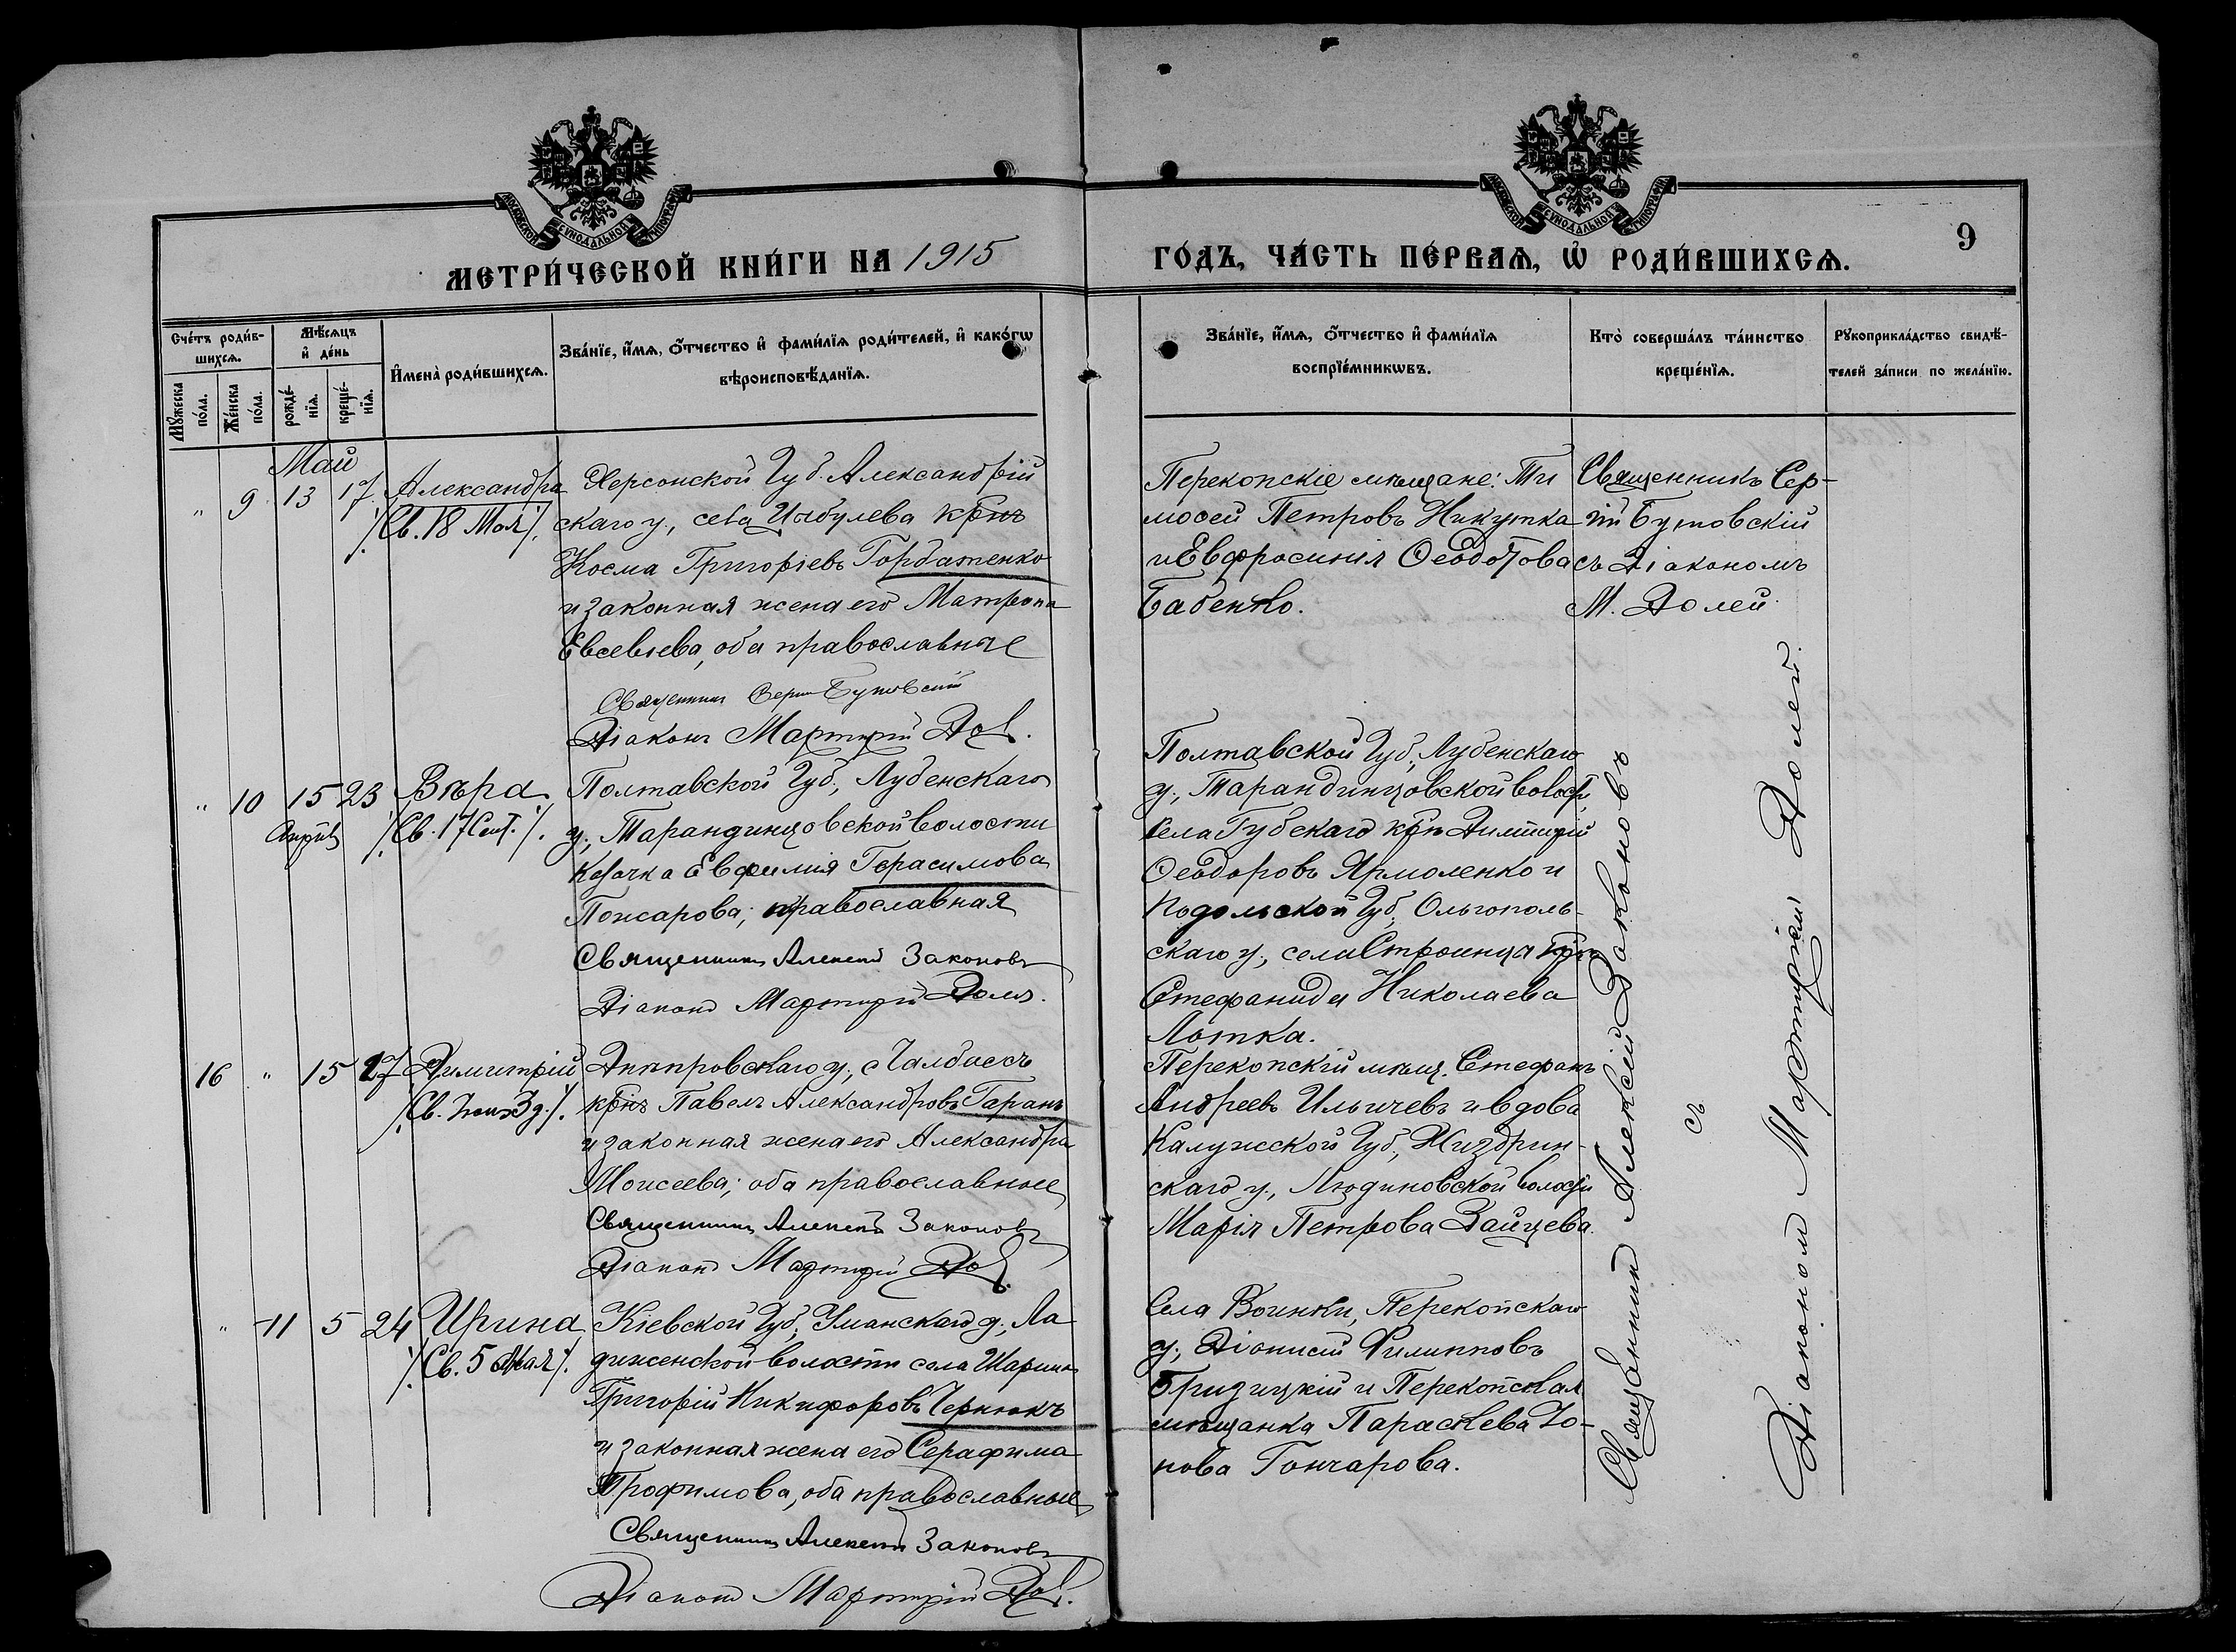 МОСКОВСКОЙ СѴНОДАЛЬНОЙ ТИПОГРАФІИ
МОСКОВСКОЙ СѴНОДАЛЬНОЙ ТИПОГРАФІИ
МЕТРИ́ЧЕСКОЙ КНИ́ГИ НА 1915
ГО́ДЪ, ЧА́СТЬ ПЕ́РВАѦ, Ѡ҆ РОДИ́ВШИХСѦ.
9
Сче́тъ роди́в-
шихсѧ.
Мꙋ́жеска
по́ла.
Же́нска
по́ла.
Мѣ́сѧцъ
и҆ де́нь
рожде́-
нїѧ.
креще́-
нїѧ.
И҆мена̀ роди́вшихсѧ.
Зва́нїе, и҆́мѧ, ѻ҆́тчество и҆ фами́лїѧ роди́телей, и҆ како́гѡ
вѣроисповѣ́данїѧ.
Зва́нїе, и҆́мѧ, ѻ҆́тчество и҆ фами́лїѧ
воспрїе́мникѡвъ.
Кто̀ соверша́лъ та́инство
креще́нїѧ.
Рꙋкоприкла́дство свидѣ́-
телей за́писи по жела́нїю.
Май
" 9 13 17 Александра
/Св. 18 Мая/.
Херсонской Губ. Александрій
скаго у., села Цыбулева крнъ
Косма Григоріевъ Горбатенко
и законная жена его Матрона
Евсевіева, оба православные
Священникъ Сергій Бутовскій
Діаконъ Мартирій Доля.
Перекопскіе мѣщане: Ти
мофей Петровъ Никутка
и Евфросинія Ѳеодотова
Бабенко.
Священникъ Сер-
гій Бутовскій
съ Діакономъ
М. Долей
" 10 15 23 Вѣра
Апрѣль
/Св. 17 Сент./.
Полтавской Губ., Лубенскаго
у., Тарандинцовской волости
козачка Евфимія Герасимова
Пожарова; православная
Священникъ Алексій Законовъ
Діаконъ Мартирій Доля.
Полтавской Губ., Лубенскаго
у., Тарандинцовской волости,
села Губскаго крнъ Димитрій
Ѳеодоровъ Ярмоленко и
Подольской Губ. Ольгополь-
скаго у., села Строинца
Стефанида Николаева
Лотка.
16 " 15 27 Димитрій
Днѣпровскаго у., с Чалбассъ
крнъ Павелъ Александровъ Гаранъ
и законная жена его Александра
Моисеева; оба православные
Священникъ Алексій Законовъ
Діаконъ Мартирій Доля.
Перекопскій мѣщ. Стефанъ
Андреевъ Ильичевъ и вдова
Калужской Губ., Жиздрин-
скаго у., Людиновской волости
Марія Петрова Зайцева.
" 11 5 24 Ирина
/Св. 5 Мая/.
Кіевской Губ., Уманскаго у., Ла
дыженской волости села Шарина
Григорій Никифоровъ Чернюкъ
и законная жена его Серафима
Трофимова, оба православные
Священникъ Алексій Законовъ
Діаконъ Мартирій Доля.
Села Воинки, Перекопскаго
у., Діонисій Филипповъ
Гризицкій и Перекопская
мѣщанка Параскева Іо-
нова Гончарова.
Священникъ Алексій Законовъ
съ
Діакономъ Мартиріемъ Долей.